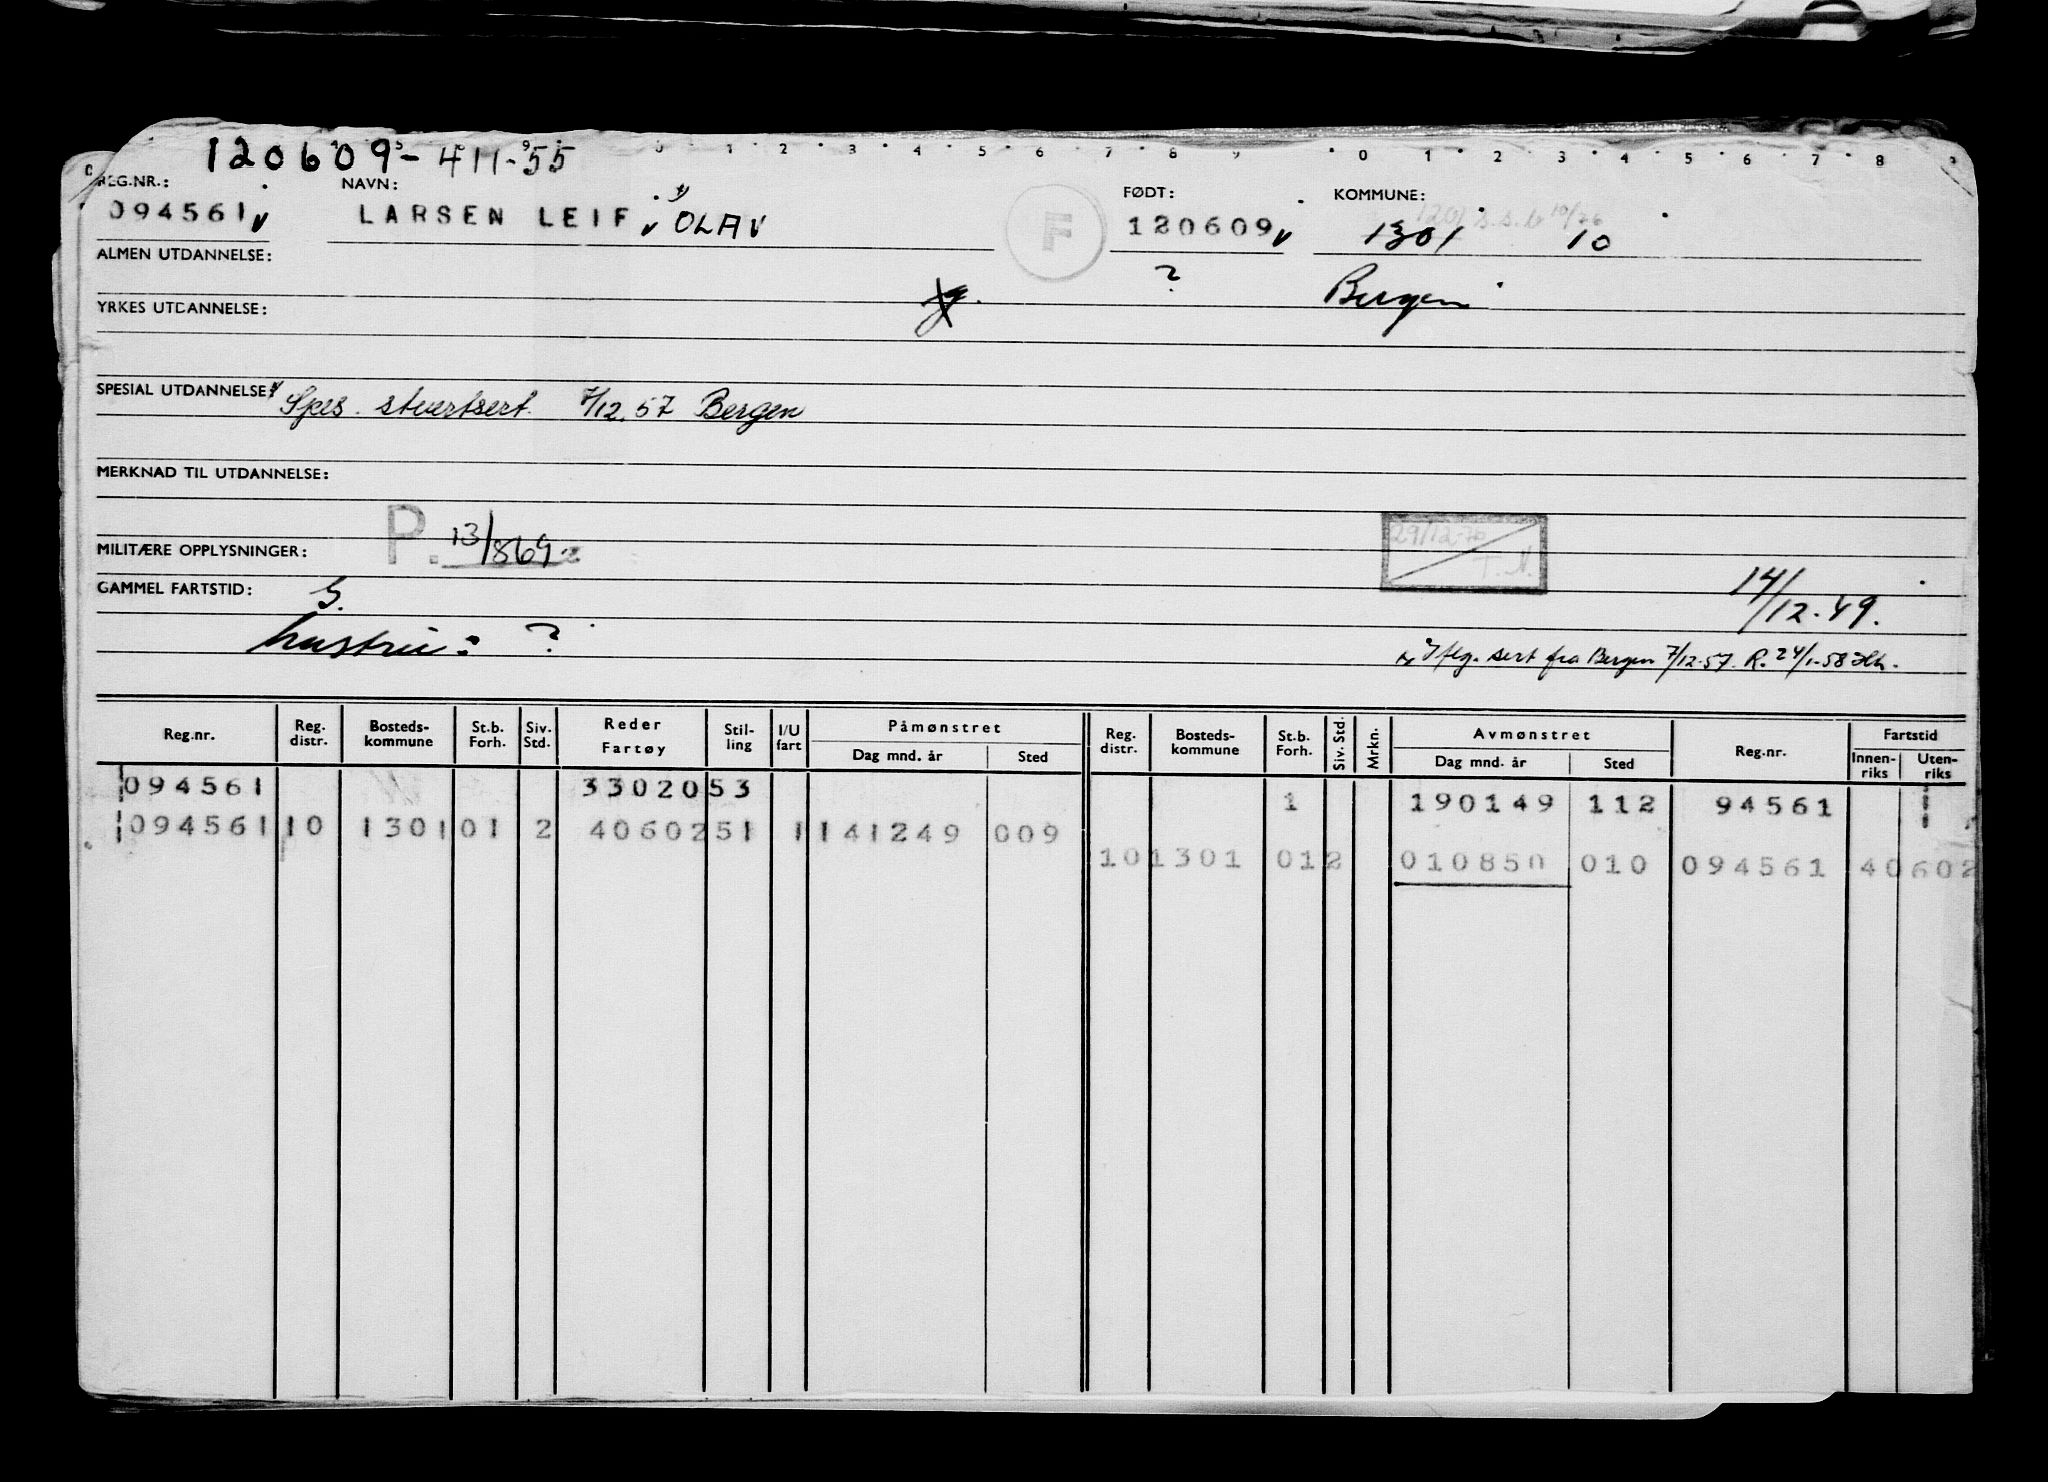 120609-411-55
0 1 2 3 4 5 6 7 8 9 0 1 2 3 4 5 6 7 8 9
REG.NR.: NAVN: FØDT: KOMMUNE:
094561 LARSEN LEIF OLAV F 120609 1301 10
ALMEN UTDANNELSE: ? Bergen
YRKES UTDANNELSE:
SPESIAL UTDANNELSE: Spes. stuertsert. 7/12.57 Bergen
MERKNAD TIL UTDANNELSE:
MILITÆRE OPPLYSNINGER: P. 13/869 29/12-70 T.N.
GAMMEL FARTSTID: S. 14/12-49.
hustru: ?
Iflg. sert fra Bergen 7/12-57. R. 24/1-58
Reg.nr. Reg. distr. Bosteds-kommune St.b. Forh. Siv. Std. Reder Fartøy Stil-ling I/U fart Påmønstret Dag mnd. år Sted Reg. distr. Bosteds-kommune St.b. Forh. Siv. Std. Mrkn. Avmønstret Dag mnd. år Sted Reg.nr. Fartstid Innen-riks Uten-riks
094561 33020 53 1 190149 112 94561
094561 10 1301 01 2 40602 51 1 141249 009
10 1301 01 2 010850 010 094561 40602